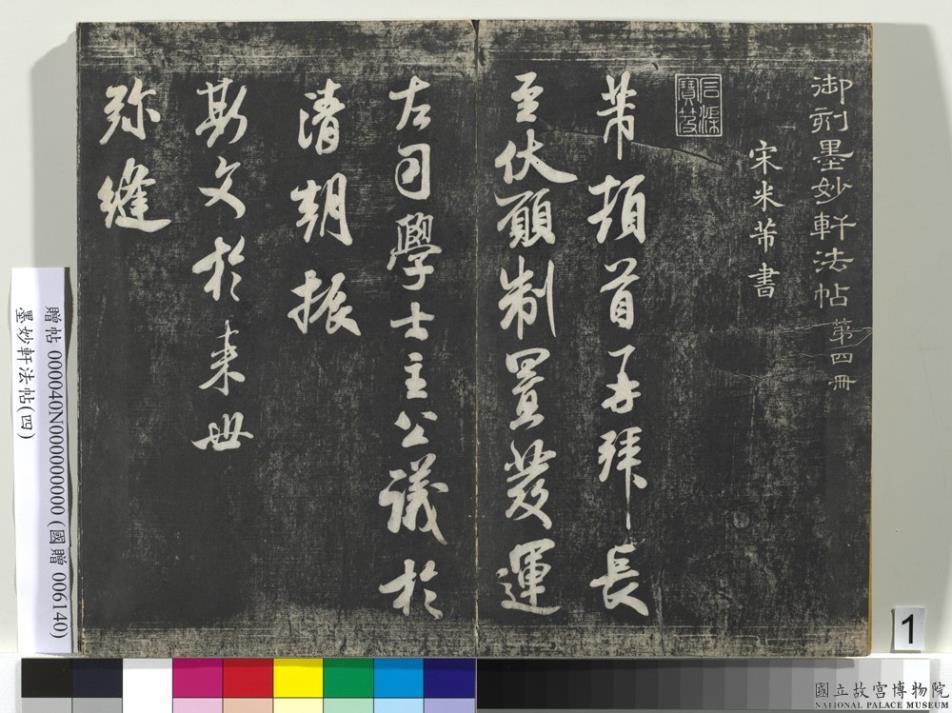 御刻墨妙軒法帖第四冊
宋米芾書
芾頓首再拜長
至伏願制置發運
左司學士主公議於
清朝振
斯文於來世
弥縫
贈帖 000040N000000000 (國贈 006140)
墨妙軒法帖(四)
1
國立故宮博物院
NATIONAL PALACE MUSEUM